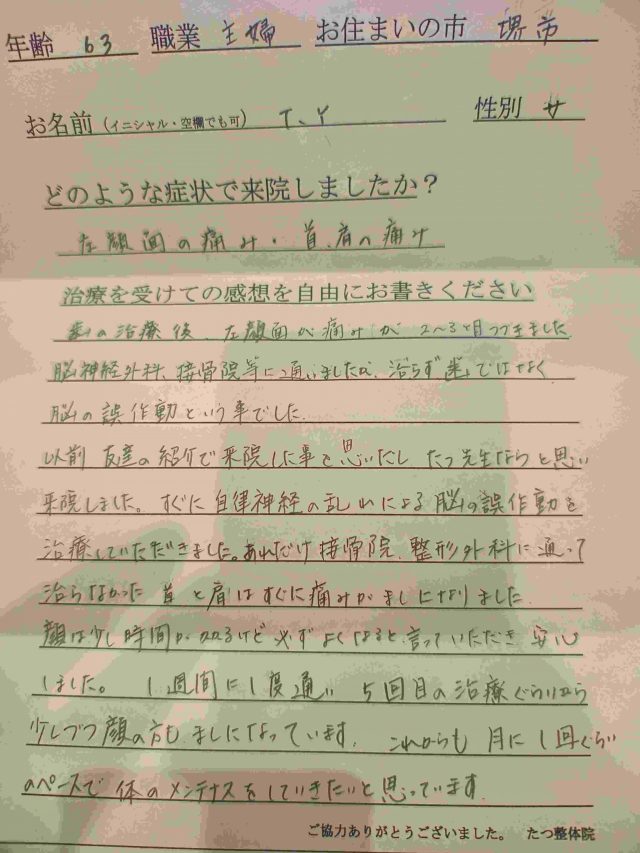 年齢 63 職業 主婦 お住まいの市 堺市
お名前（イニシャル・空欄でも可） T、Y 性別 女
どのような症状で来院しましたか？
左顔面の痛み・首、肩の痛み
治療を受けての感想を自由にお書きください
歯の治療後、左顔面が痛みが 2〜3ヶ月つづきました
脳神経外科、接骨院等に通いましたが、治らず歯ではなく
脳の誤作動という事でした。
以前 友達の紹介で来院した事を思いだし たつ先生ならと思い
来院しました。すぐに自律神経の乱れによる脳の誤作動を
治療していただきました。あれだけ接骨院、整形外科に通って
治らなかった 首と肩はすぐに痛みがましになりました。
顔は少し時間がかかるけど必ずよくなると言っていただき 安心
しました。 1週間に1度通い 5回目の治療ぐらいから
少しづつ顔の方も ましになっています。 これからも 月に1回ぐらい
のペースで 体のメンテナスをしていきたいと思っています。
ご協力ありがとうございました。 たつ整体院